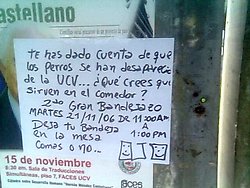 astellano
Te has dado cuenta de que
los perros se han desaparec
de la UCV... ¿Qué crees que
sirven en el comedor?
2do Gran Bandejazo
MARTES 21/11/06 DE 11:00AM
Deja tu Bandeja A
en la mesa 1:00 PM
Comas o no...
15 de noviembre
9:30 am. Sala de Traducciones
Simultáneas, piso 7, FACES UCV
faces